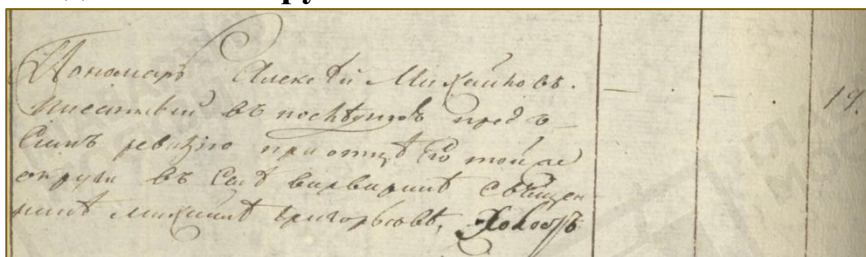 Пономарь Алексѣй Михайловъ.
писанный въ последнюю предъ
симъ ревизiю при отцѣ Его той же
округи въ Селѣ Варваринѣ Священ
никѣ Михаилѣ Григорьевѣ, Холостъ
19.